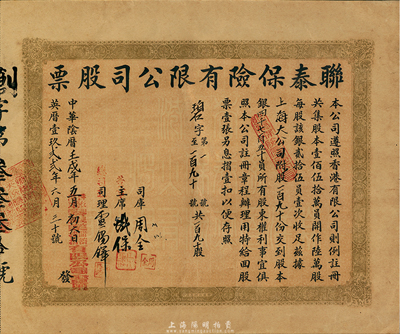 聯泰保險有限公司股票
本公司遵照香港有限公司則例註冊
共集股本壹佰伍拾萬員開作陸萬股
每股該銀貳拾伍員壹次收足茲據
上海大公司附股一百九十份交到股本
銀四千七百五十員所有股東權利事宜俱
照本公司註冊章程辦理用特給回股
票壹張另息摺壹扣以便存照
字第一號至一百九十號共一百九十股
司庫 周全
主席
司理
中華陰曆壬戌年五月初六日
英曆壹玖貳貳年六月三十號 發
創字第
上海陽明拍賣